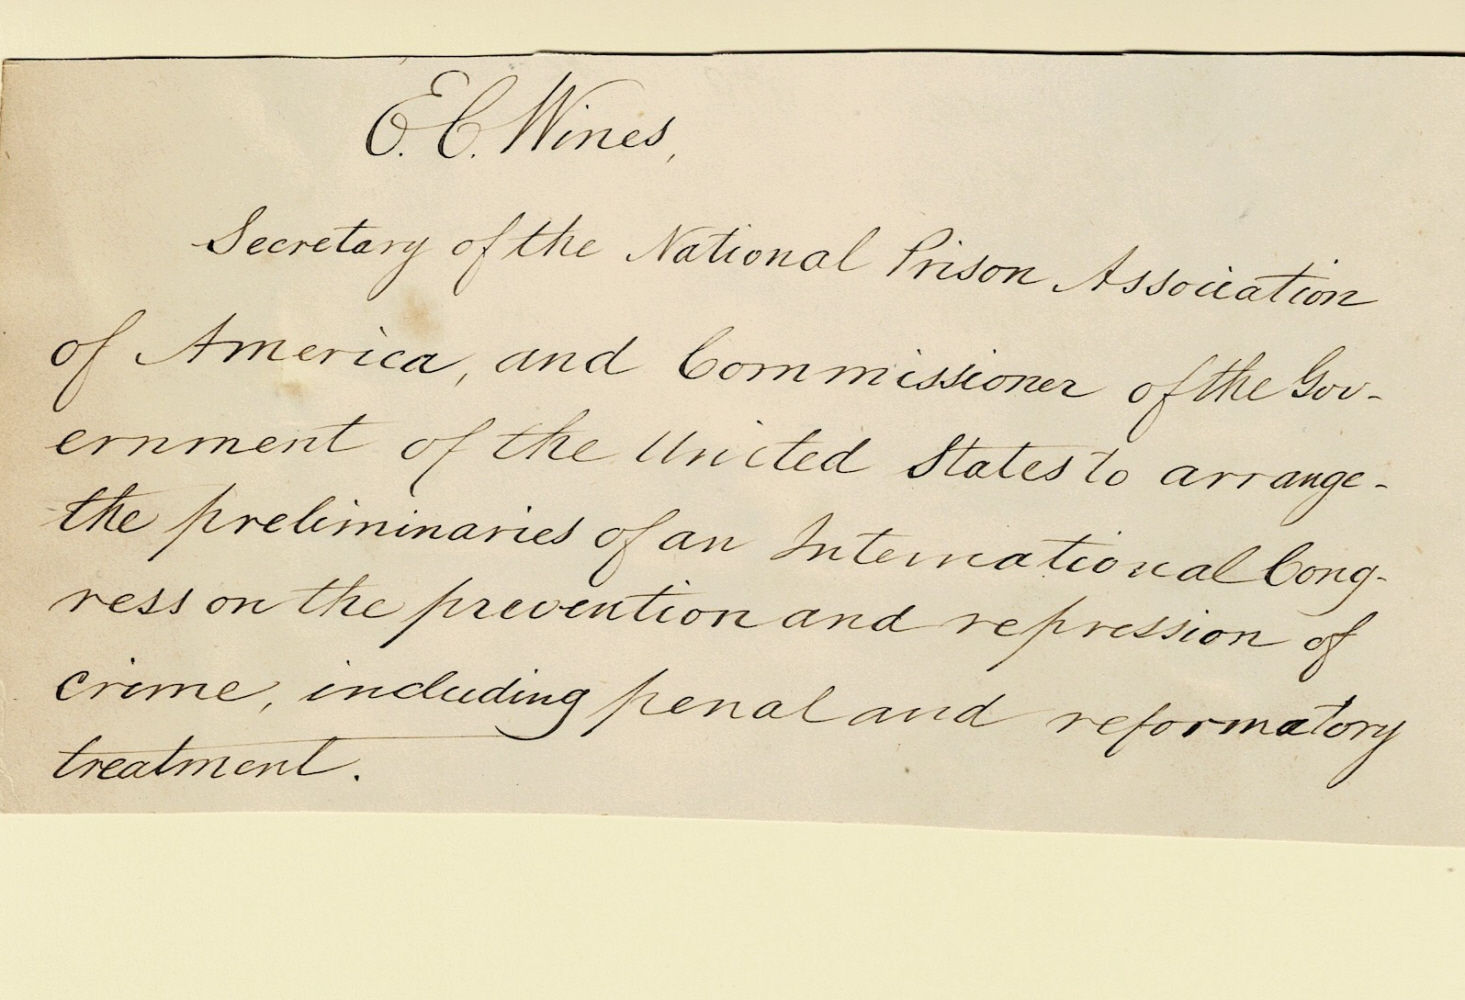 E. C. Wines,
Secretary of the National Prison Association
of America, and Commissioner of the Gov-
ernment of the United States to arrange
the preliminaries of an International Cong-
ress on the prevention and repression of
crime, including penal and reformatory
treatment.